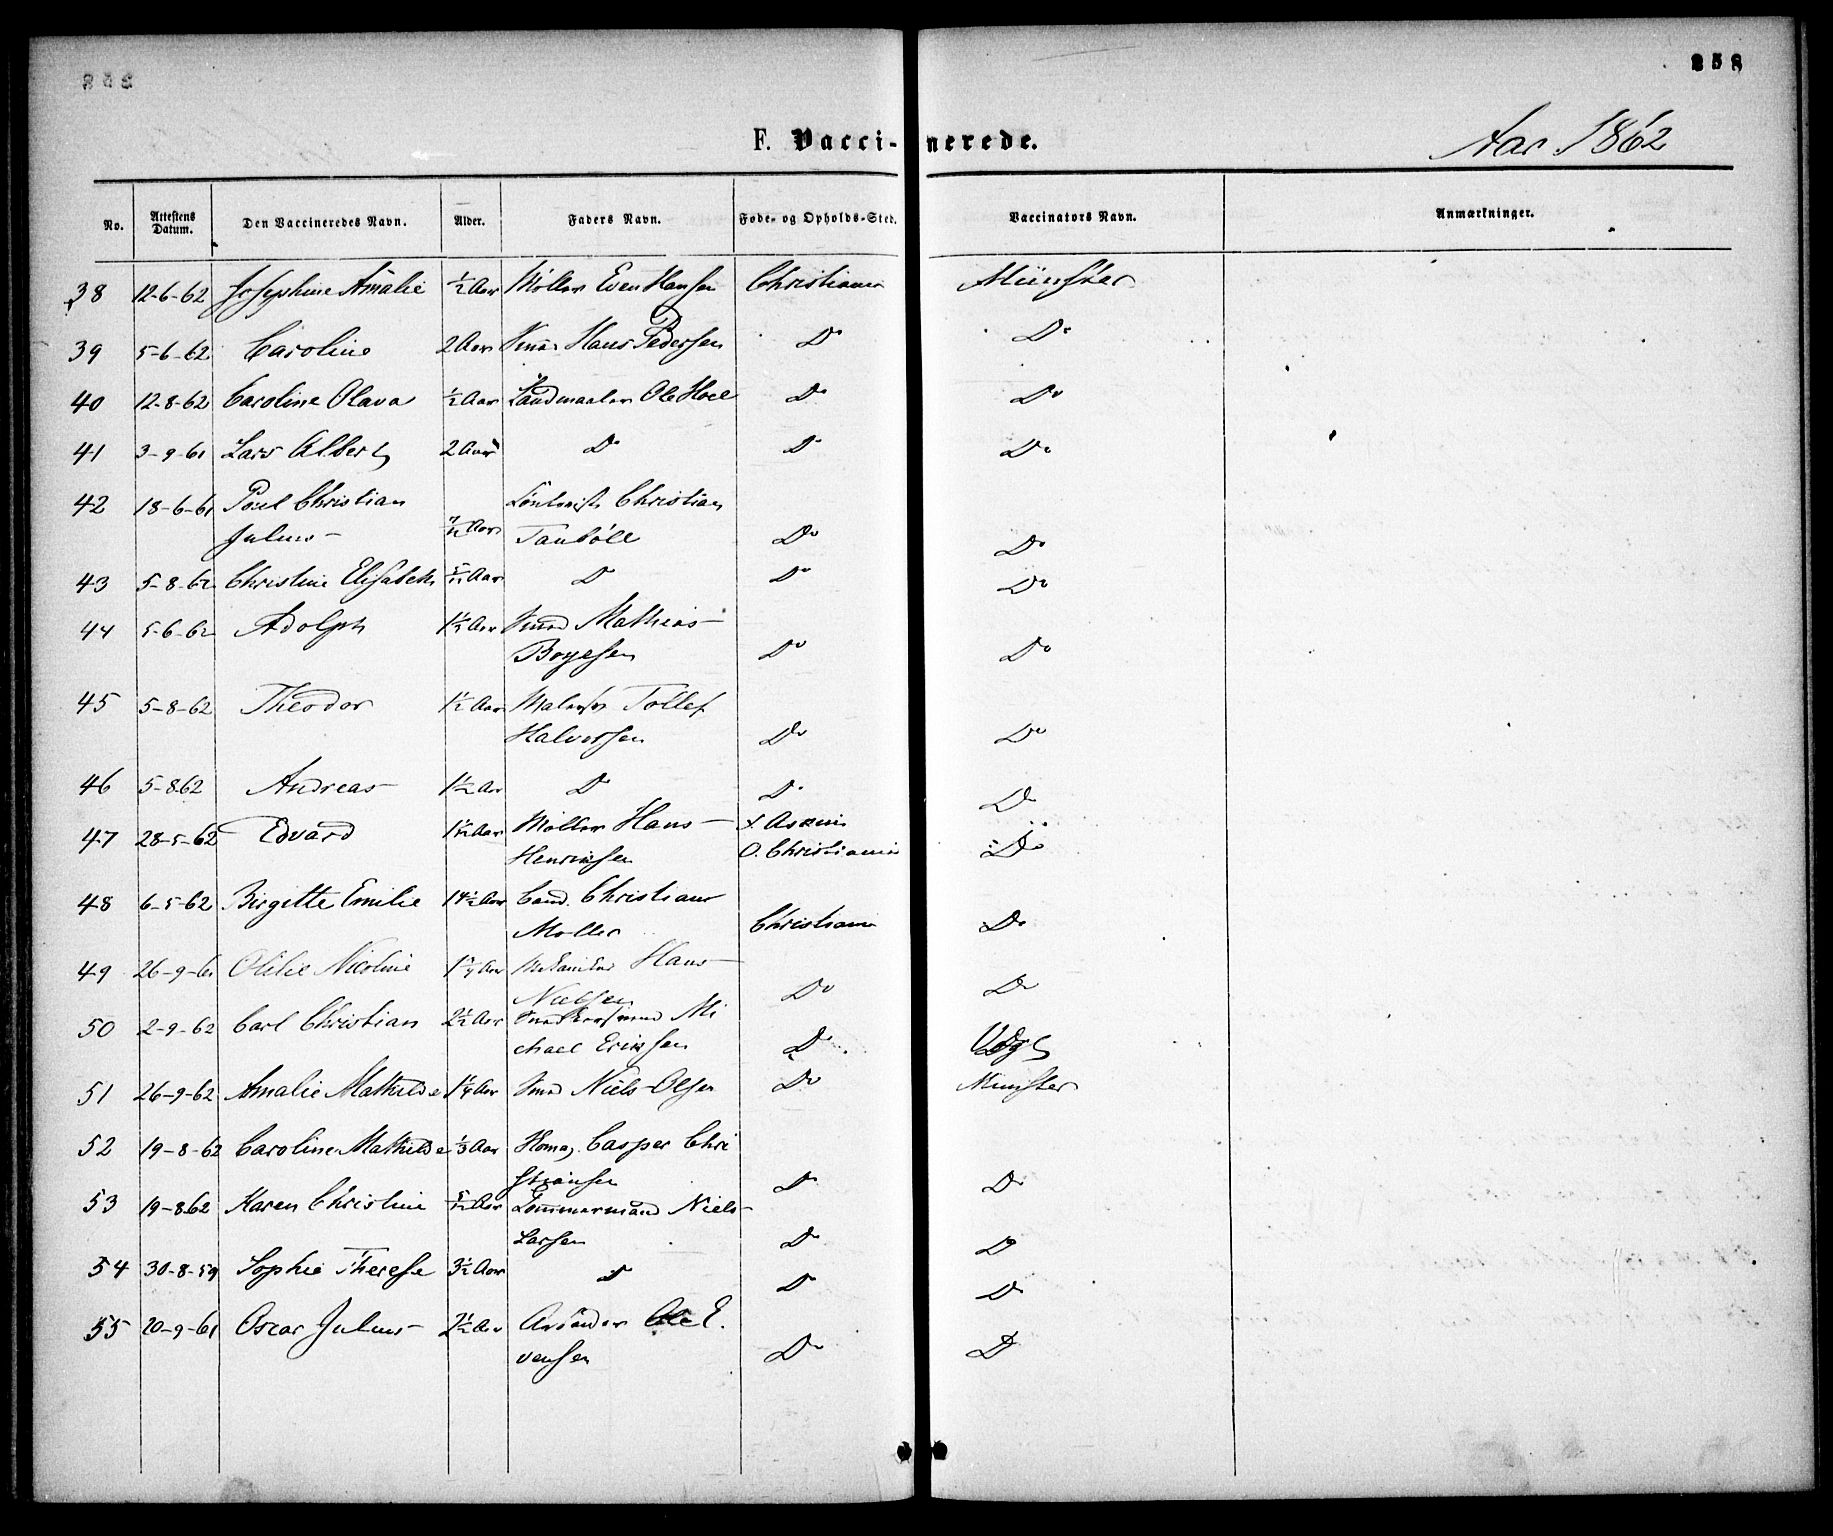 258
F. Vaccinerede.
Aar 1862
No. Attestens Datum. Den Vaccineredes Navn. Alder. Faders Navn. Føde- og Opholds-Sted. Vaccinators Navn. Anmærkninger.
38 12-6-62 Josephine Amalie ½ Aar Møller Even Hansen Christiania Münster
39 5-6-62 Caroline 2 Aar Hans Pedersen Do Do
40 12-8-62 Caroline Olava ½ Aar Landmaaler Ole Hoel Do Do
41 3-9-61 Lars Albert 2 Aar Do Do Do
42 18-6-61 Poul Christian Christian
Julius Aar Tanbøll Do Do
43 5-8-62 Christine Elisabeth Aar Do Do Do
44 5-6-62 Adolph 1½ Aar Mathias
Boyesen Do Do
45 5-8-62 Theodor 1½ Aar Tollef
Halvorsen Do Do
46 5-8 62 Andreas 1½ Aar Do Do Do
47 28-5-62 Edvard Aar Møller Hans
Henriksen O. Christiania Do
48 6-5-62 Birgitte Emilie 14½ Aar Cand. Christian
Møller Christiania Do
49 26-9-61 Otilie Nicoline Aar Hans
Nielsen Do Do
50 2-9-62 Carl Christian 2½ Aar Mi
chael Eriksen Do Vogt
51 26-9-62 Amalie Mathilde 1¼ Aar Niels Olsen Do Münster
52 19-8-62 Caroline Mathilde ⅓ Aar Casper Chri
stiansen Do Do
53 19-8 62 Karen Christine Aar Tømmermand Niels
Larsen Do Do
54 30-8-59 Sophie Therese 3½ Aar Do Do Do
55 20-9-61 Oscar Julius 2½ Aar Ole E.
vensen Do Do